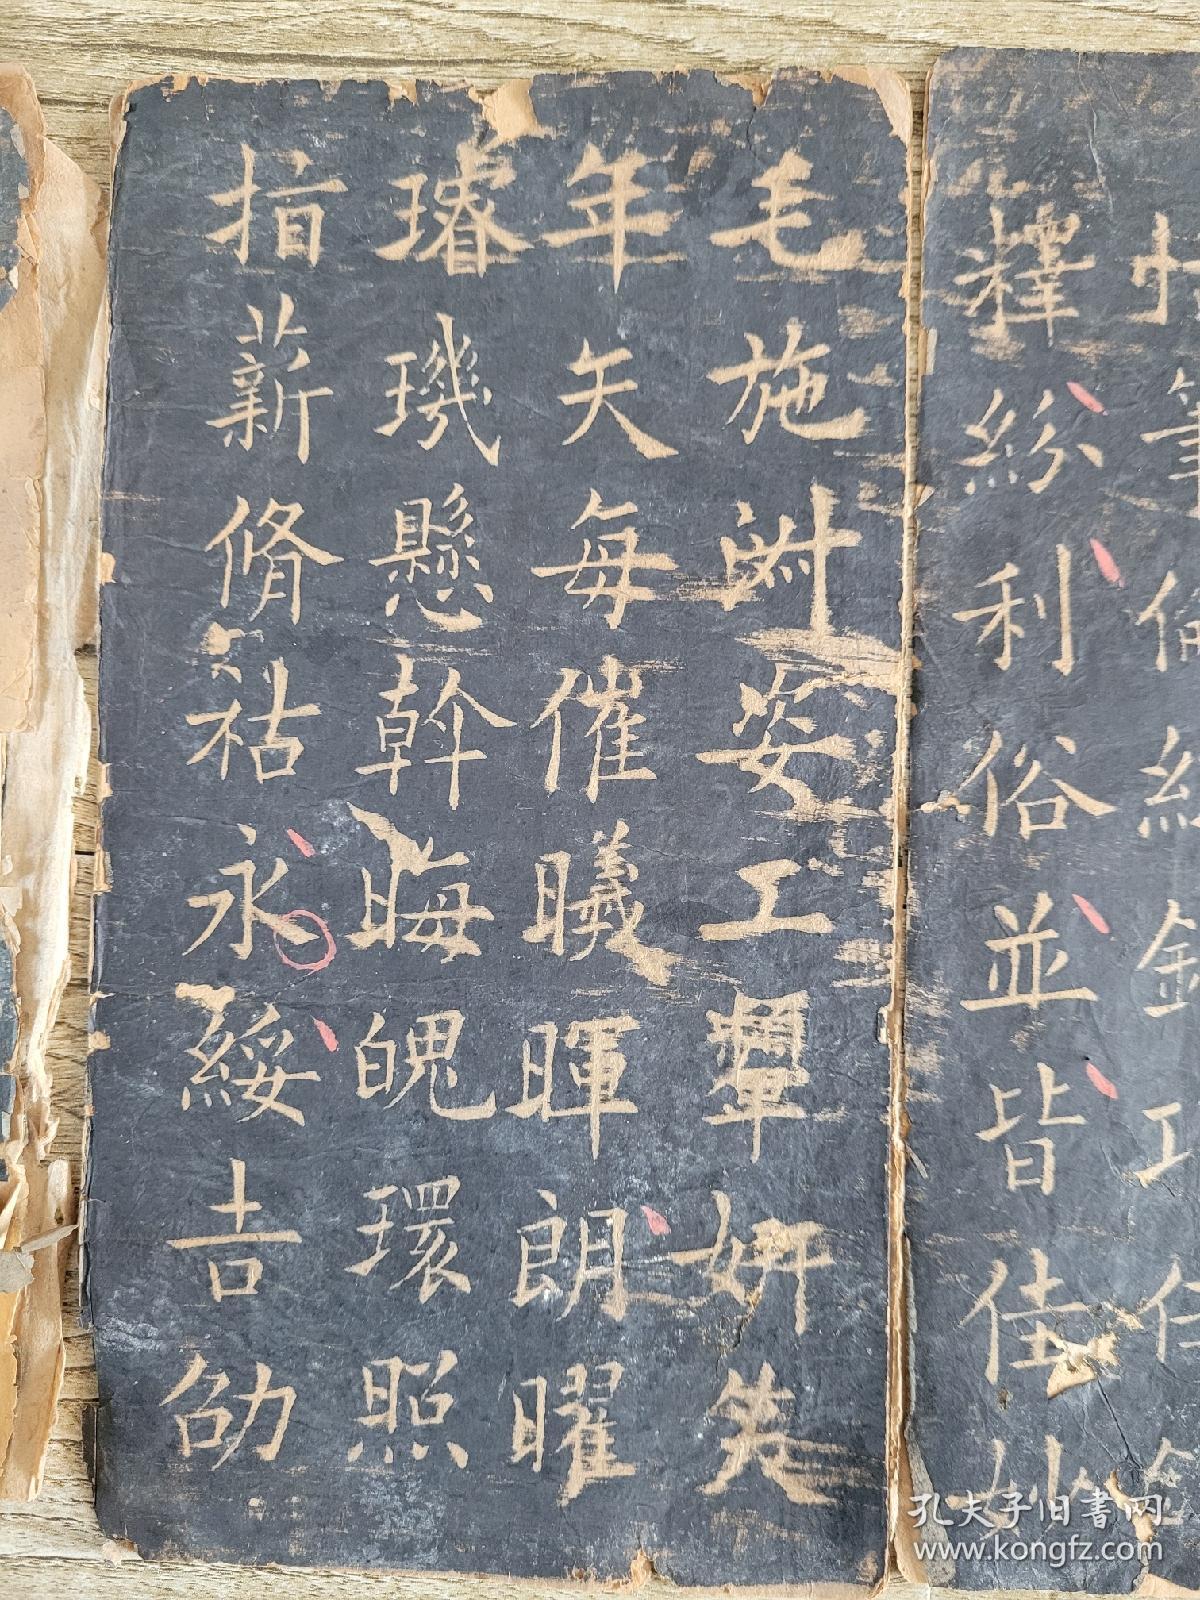 釋紛利俗並皆佳妙
毛施淑姿工顰妍笑
年矢每催曦暉朗曜
璿璣懸斡晦魄環照
指薪脩祜永綏吉劭
孔夫子旧书网
www.kongfz.com